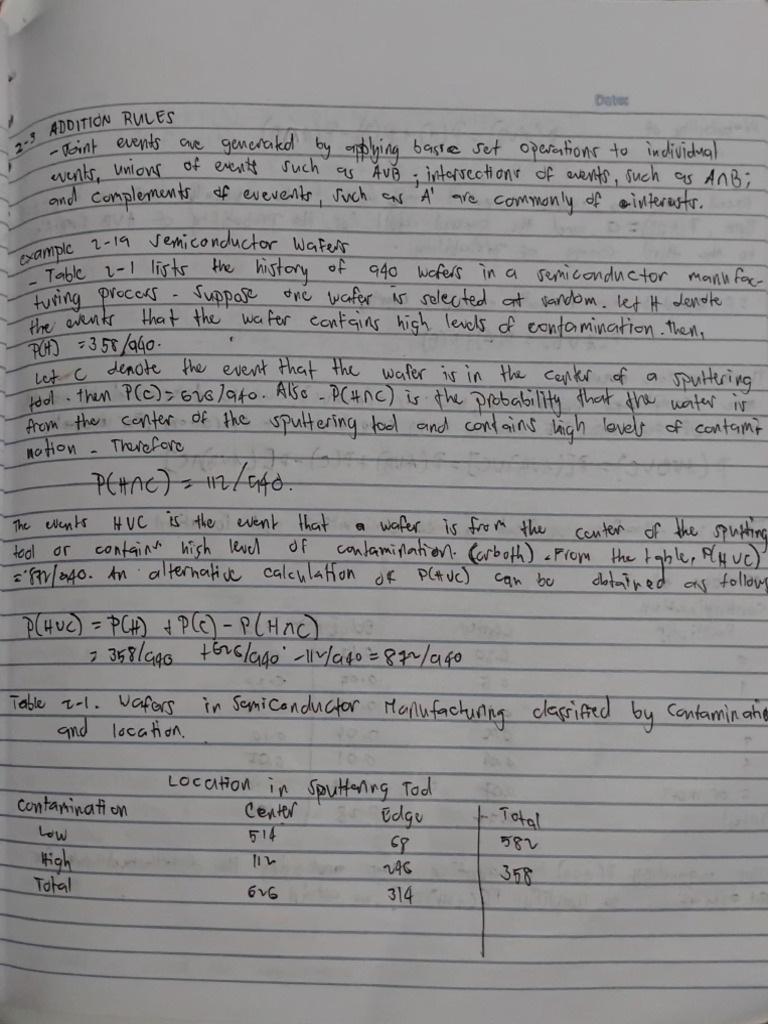 Date:
2-3 ADDITION RULES
- Joint events are generated by applying basic set operations to individual
events, unions of events such as AUB ; intersections of events, such as A∩B;
and complements of evevents, such as A' are commonly of interests.
example 2-19 Semiconductor Wafers
- Table 2-1 lists the history of 940 wafers in a semiconductor manufac-
turing process - suppose one wafer is selected at random. let H denote
the events that the wafer contains high levels of contamination. then,
P(H) = 358/940.
Let C denote the event that the wafer is in the center of a sputtering
tool. then P(C)= 626/940. Also - P(H∩C) is the probability that the wafer is
from the center of the sputtering tool and contains high levels of contami-
nation - Therefore
P(H∩C) = 112/940.
The events HUC is the event that a wafer is from the center of the sputting
tool or contains high level of contamination. (or both). From the table, P(HUC)
= 872/940. An alternative calculation of P(HUC) can be obtained as follow
P(HUC) = P(H) + P(C) - P(H∩C)
= 358/940 + 626/940 - 112/940 = 872/940
Table 2-1. Wafers in Semiconductor Manufacturing classified by Contaminatio
and location.
Location in Sputtering Tool
Contamination Center Edge Total
Low 514 68 582
High 112 246 358
Total 626 314